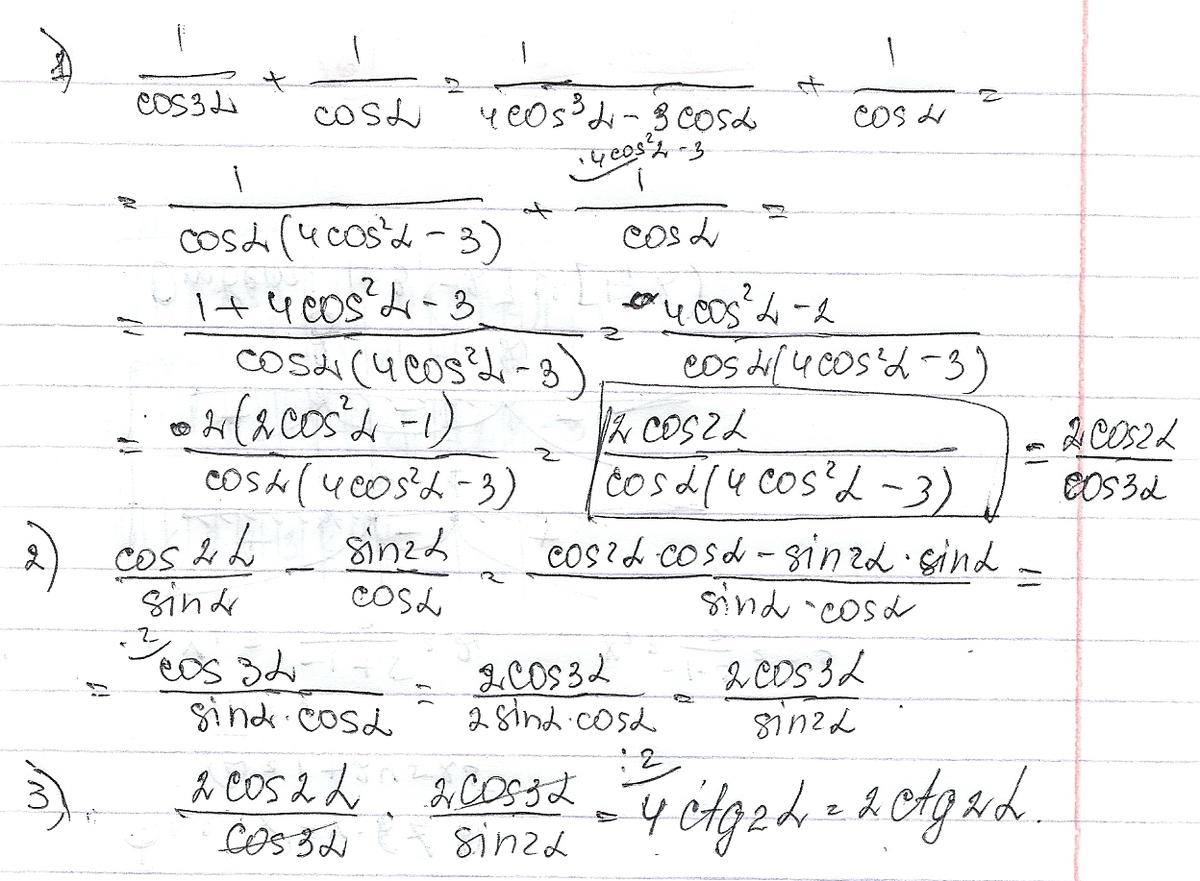 1) 1/cos3α + 1/cosα = 1/(4cos³α - 3cosα) + 1/cosα =
= 1/(cosα(4cos²α - 3)) + ·4cos²α - 3 1/cosα =
= (1 + 4cos²α - 3)/(cosα(4cos²α - 3)) = (4cos²α - 2)/(cosα(4cos²α - 3))
= 2(2cos²α - 1)/(cosα(4cos²α - 3)) = 2cos2α/(cosα(4cos²α - 3)) = 2cos2α/cos3α
2) cos2α/sinα - sin2α/cosα = (cos2α·cosα - sin2α·sinα)/(sinα·cosα) =
= ·2 cos3α/(sinα·cosα) = 2cos3α/(2sinα·cosα) = 2cos3α/sin2α.
3). 2cos2α/cos3α · 2cos3α/sin2α = :2 4ctg2α = 2ctg2α.